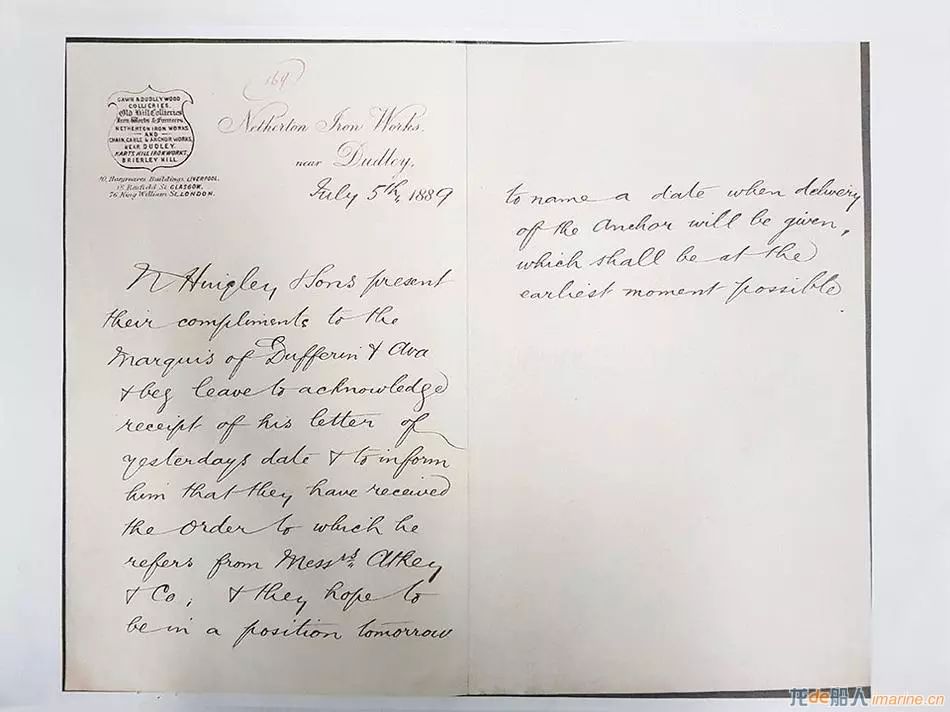 169
CAWN & DUDLEY WOOD
COLLIERIES.
Old Hill Collieries
Iron Works & Furnaces.
NETHERTON IRON WORKS
AND
CHAIN, CABLE & ANCHOR WORKS,
NEAR DUDLEY.
HARTS HILL IRONWORKS,
BRIERLEY HILL.
10, Hargreaves Buildings, LIVERPOOL.
St. GLASGOW.
76, King William St. LONDON.
Netherton Iron Works,
near Dudley,
July 5th, 1889
N Hingley & Sons present
their compliments to the
Marquis of Dufferin & Ava
& beg leave to acknowledge
receipt of his letter of
yesterdays date & to inform
him that they have received
the order to which he
refers from Messrs. Atkey
& Co; & they hope to
be in a position tomorrow
to name a date when delivery
off the Anchor will be given,
which shall be at the
earliest moment possible
龙de船人 imarine.cn